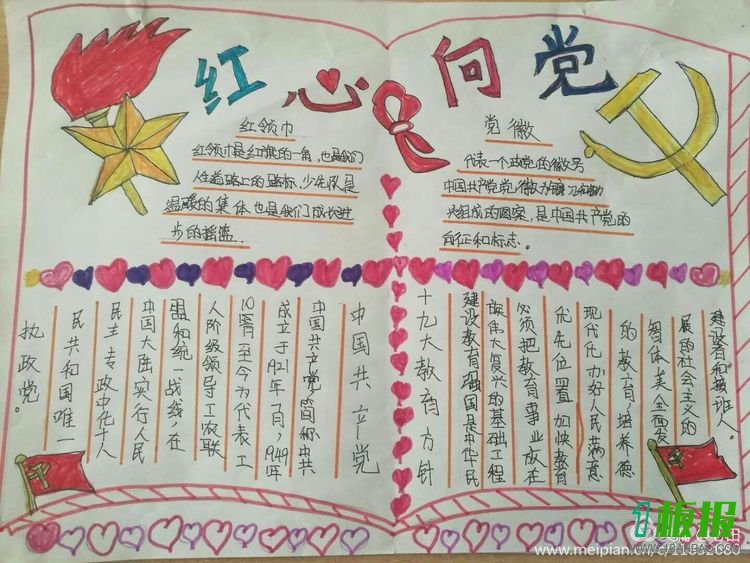 红心向党
红领巾
红领巾是红旗的一角，也是我们
人生道路上的路标，少先队是
温暖的集体也是我们成长进
步的摇篮。
党徽
代表一个政党的徽号
中国共产党党徽为镰刀和
组成的图案，是中国共产党的
和标志。
中国共产党
中国共产党，简称中共
成立于1921年7月，1949年
10月至今为代表工
人阶级领导工农联
盟和统一战线，在
中国大陆实行人民
民主专政中
民共和国唯一
执政党。
十九大教育方针
建设教育强国是中华民
族伟大复兴的基础工程
必须把教育事业放在
优先位置加快教育
现代化办好人民满意
的教育，培养德
智体美全面发
展的社会主义的
建设者和接班人。
1板报
www.meipian.cn/c/11892680